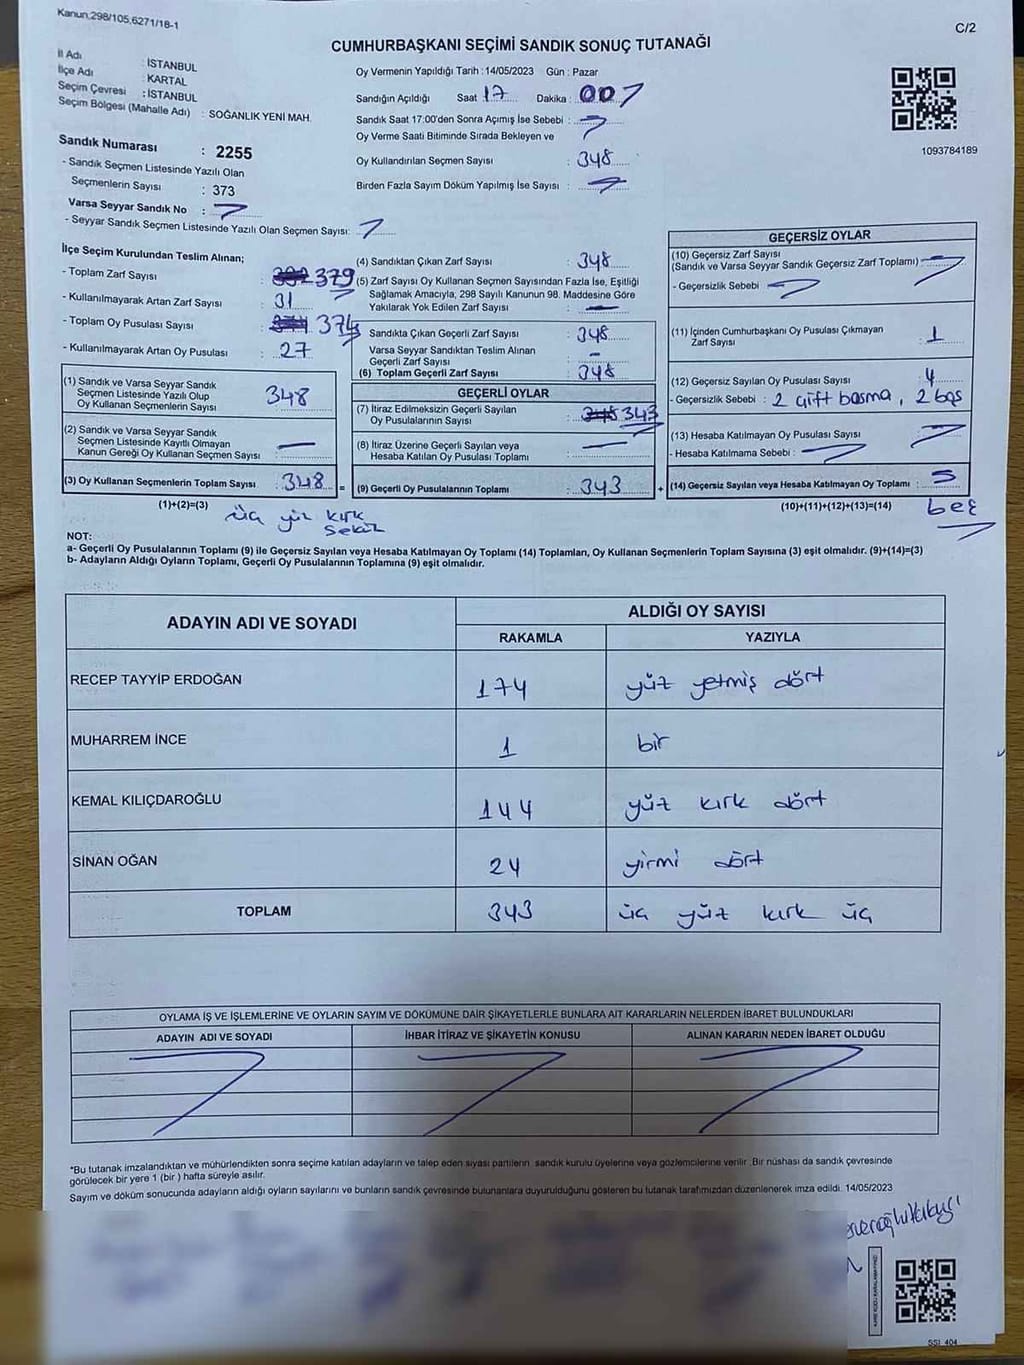 Kanun,298/105,6271/18-1
C/2
CUMHURBAŞKANI SEÇİMİ SANDIK SONUÇ TUTANAĞI
İl Adı : İSTANBUL
İlçe Adı : KARTAL
Seçim Çevresi : İSTANBUL
Seçim Bölgesi (Mahalle Adı) : SOĞANLIK YENİ MAH.
Sandık Numarası : 2255
- Sandık Seçmen Listesinde Yazılı Olan
Seçmenlerin Sayısı : 373
Varsa Seyyar Sandık No :
- Seyyar Sandık Seçmen Listesinde Yazılı Olan Seçmen Sayısı:
Oy Vermenin Yapıldığı Tarih : 14/05/2023 Gün : Pazar
Sandığın Açıldığı Saat 17 Dakika : 00
Sandık Saat 17:00'den Sonra Açımış İse Sebebi :
Oy Verme Saati Bitiminde Sırada Bekleyen ve
Oy Kullandırılan Seçmen Sayısı : 348
Birden Fazla Sayım Döküm Yapılmış İse Sayısı :
1093784189
İlçe Seçim Kurulundan Teslim Alınan;
- Toplam Zarf Sayısı : 379
- Kullanılmayarak Artan Zarf Sayısı : 31
- Toplam Oy Pusulası Sayısı : 374
- Kullanılmayarak Artan Oy Pusulası : 27
(1) Sandık ve Varsa Seyyar Sandık
Seçmen Listesinde Yazılı Olup
Oy Kullanan Seçmenlerin Sayısı 348
(2) Sandık ve Varsa Seyyar Sandık
Seçmen Listesinde Kayıtlı Olmayan
Kanun Gereği Oy Kullanan Seçmen Sayısı :
(3) Oy Kullanan Seçmenlerin Toplam Sayısı : 348 =
(1)+(2)=(3)
üç yüz kırk
sekiz
(4) Sandıktan Çıkan Zarf Sayısı : 348
(5) Zarf Sayısı Oy Kullanan Seçmen Sayısından Fazla İse, Eşitliği
Sağlamak Amacıyla, 298 Sayılı Kanunun 98. Maddesine Göre
Yakılarak Yok Edilen Zarf Sayısı :
Sandıkta Çıkan Geçerli Zarf Sayısı : 348
Varsa Seyyar Sandıktan Teslim Alınan
Geçerli Zarf Sayısı : -
(6) Toplam Geçerli Zarf Sayısı : 348
GEÇERLİ OYLAR
(7) İtiraz Edilmeksizin Geçerli Sayılan
Oy Pusulalarının Sayısı : 343
(8) İtiraz Üzerine Geçerli Sayılan veya
Hesaba Katılan Oy Pusulası Toplamı :
(9) Geçerli Oy Pusulalarının Toplamı : 343 +
GEÇERSİZ OYLAR
(10) Geçersiz Zarf Sayısı
(Sandık ve Varsa Seyyar Sandık Geçersiz Zarf Toplamı) :
- Geçersizlik Sebebi :
(11) İçinden Cumhurbaşkanı Oy Pusulası Çıkmayan
Zarf Sayısı : 1
(12) Geçersiz Sayılan Oy Pusulası Sayısı : 4
- Geçersizlik Sebebi : 2 çift basma, 2 boş
(13) Hesaba Katılmayan Oy Pusulası Sayısı :
- Hesaba Katılmama Sebebi :
(14) Geçersiz Sayılan veya Hesaba Katılmayan Oy Toplamı : 5
(10)+(11)+(12)+(13)=(14)
beş
NOT:
a- Geçerli Oy Pusulalarının Toplamı (9) ile Geçersiz Sayılan veya Hesaba Katılmayan Oy Toplamı (14) Toplamları, Oy Kullanan Seçmenlerin Toplam Sayısına (3) eşit olmalıdır. (9)+(14)=(3)
b- Adayların Aldığı Oyların Toplamı, Geçerli Oy Pusulalarının Toplamına (9) eşit olmalıdır.
ADAYIN ADI VE SOYADI
ALDIĞI OY SAYISI
RAKAMLA YAZIYLA
RECEP TAYYİP ERDOĞAN 174 yüz yetmiş dört
MUHARREM İNCE 1 bir
KEMAL KILIÇDAROĞLU 144 yüz kırk dört
SİNAN OĞAN 24 yirmi dört
TOPLAM 343 üç yüz kırk üç
OYLAMA İŞ VE İŞLEMLERİNE VE OYLARIN SAYIM VE DÖKÜMÜNE DAİR ŞİKAYETLERLE BUNLARA AİT KARARLARIN NELERDEN İBARET BULUNDUKLARI
ADAYIN ADI VE SOYADI İHBAR İTİRAZ VE ŞİKAYETİN KONUSU ALINAN KARARIN NEDEN İBARET OLDUĞU
*Bu tutanak imzalandıktan ve mühürlendikten sonra seçime katılan adayların ve talep eden siyasi partilerin, sandık kurulu üyelerine veya gözlemcilerine verilir. Bir nüshası da sandık çevresinde
görülecek bir yere 1 (bir) hafta süreyle asılır.
Sayım ve döküm sonucunda adayların aldığı oyların sayılarını ve bunların sandık çevresinde bulunanlara duyurulduğunu gösteren bu tutanak tarafımızdan düzenlenerek imza edildi. 14/05/2023
SSI_404